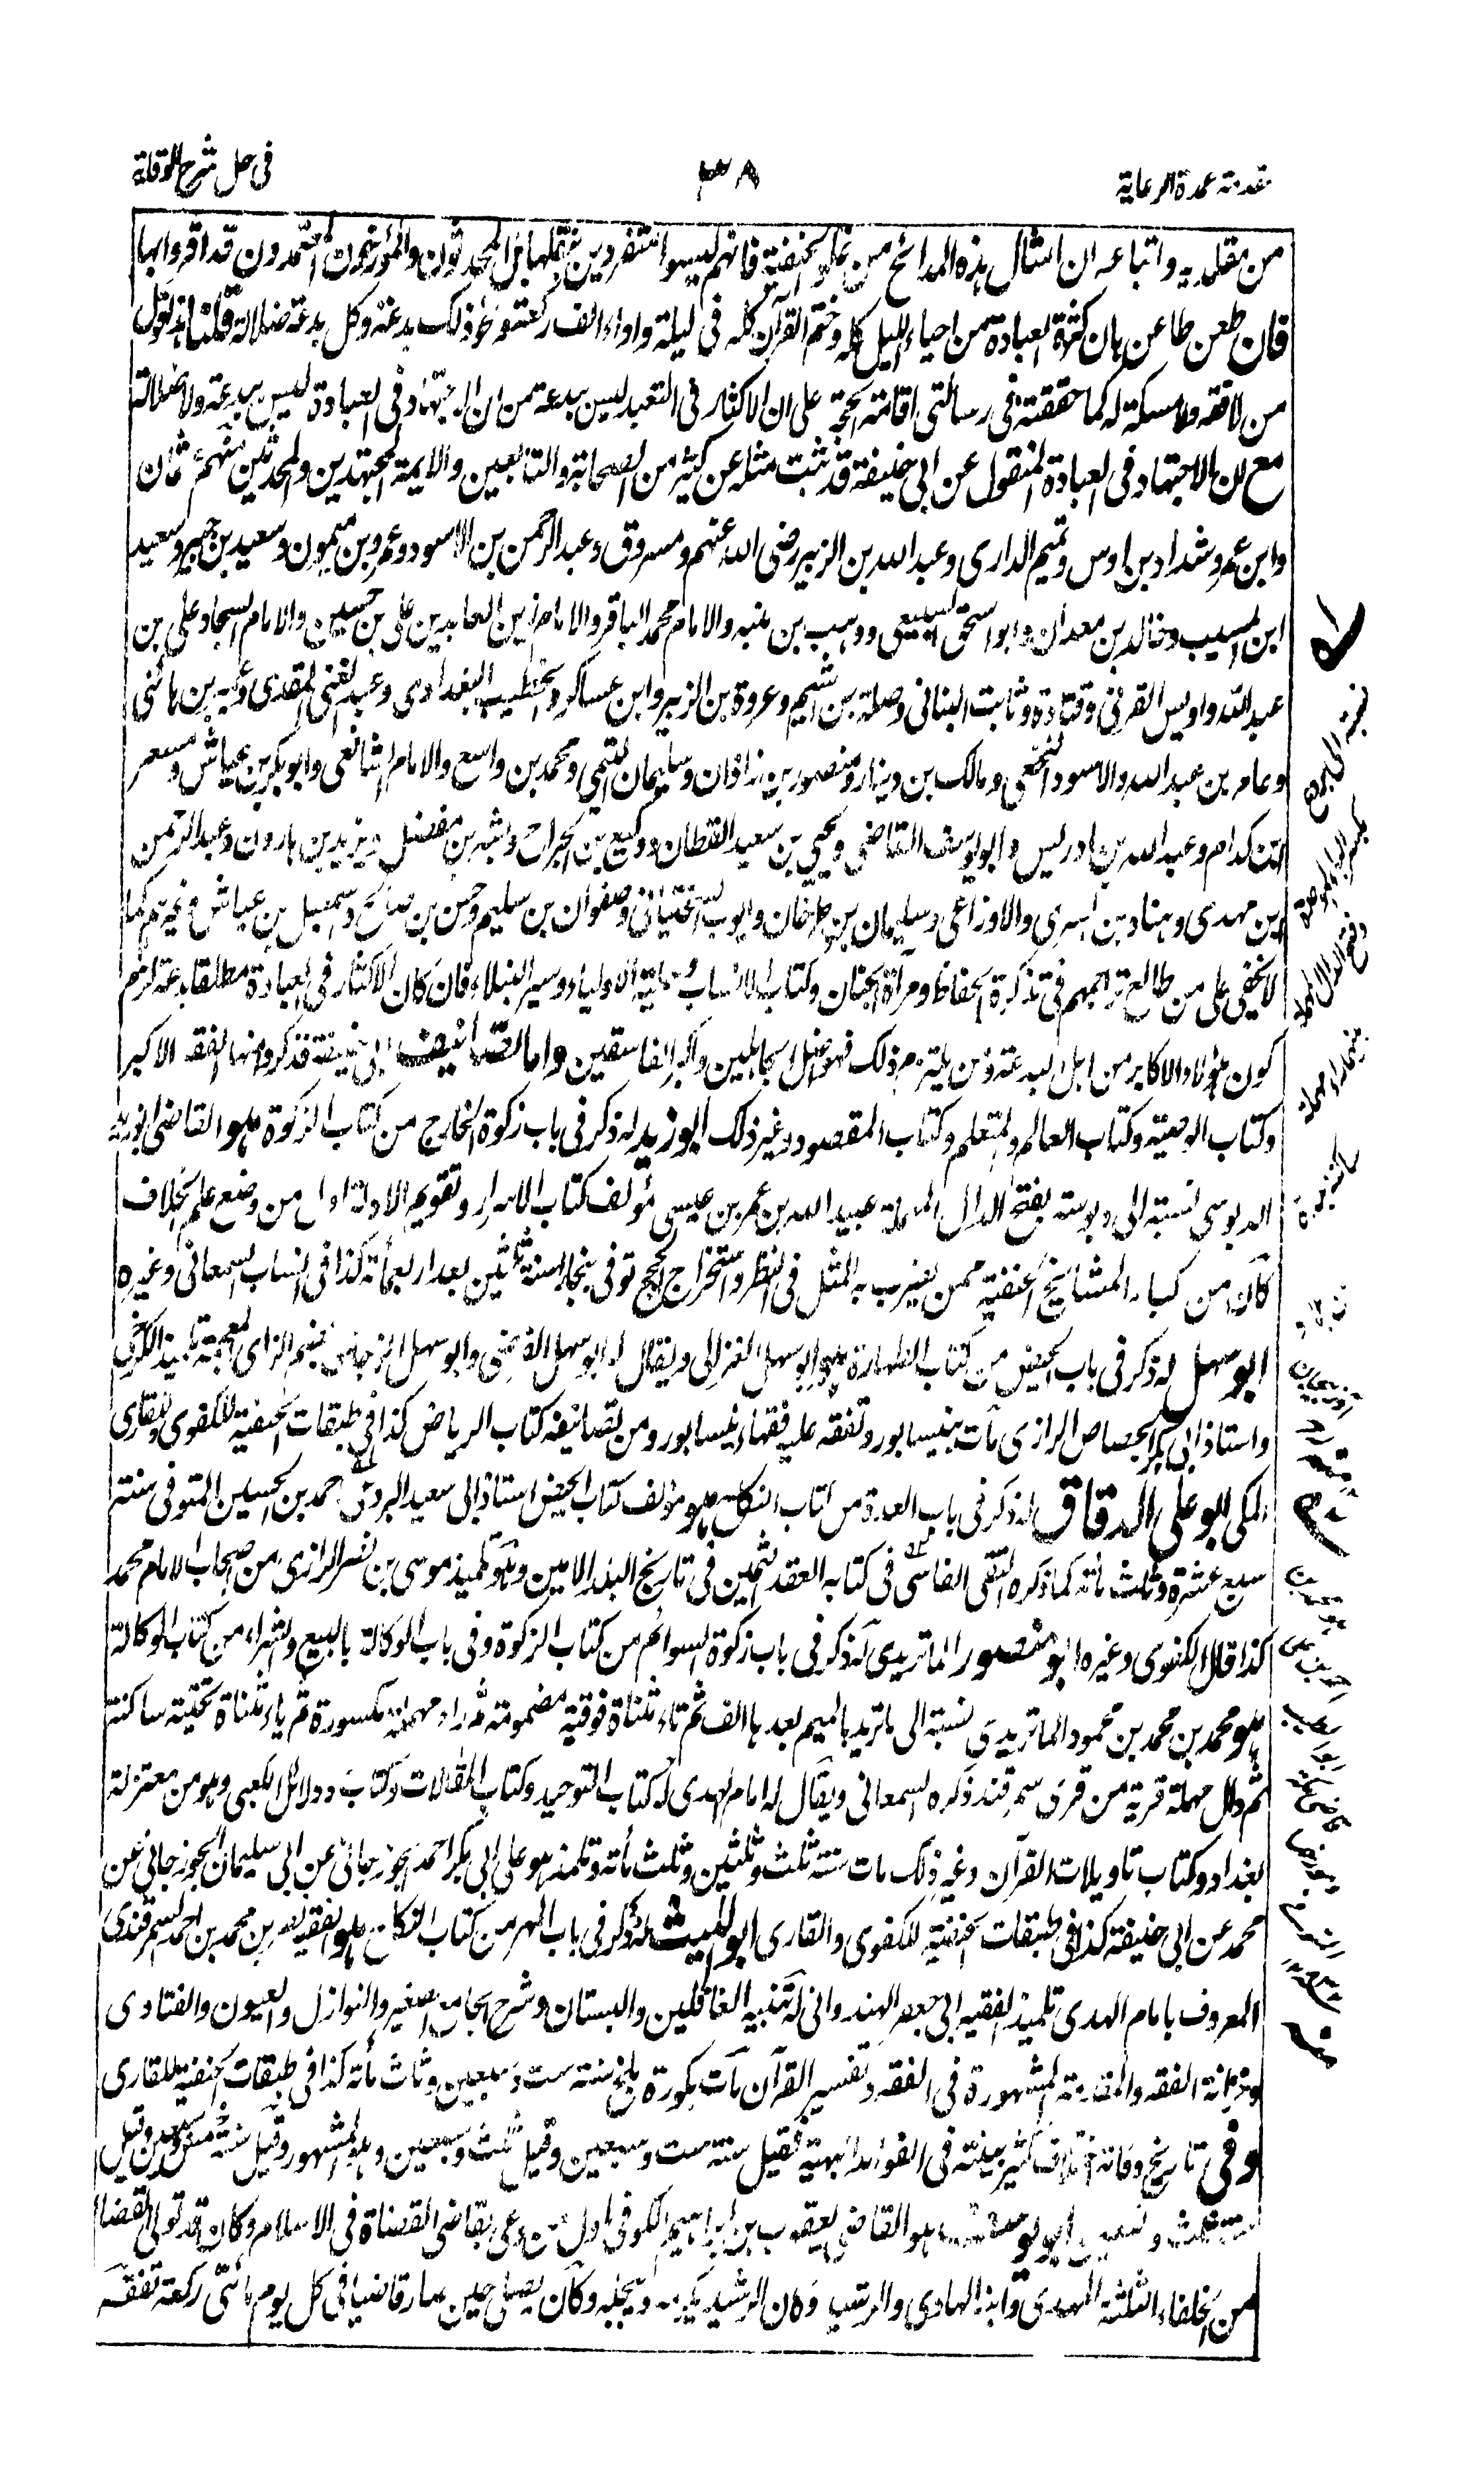 مقدمة عمدة الرعاية
٣٨
فى حل شرح الوقاية
من مقلديه واتباعه ان امثال هذه المدائح من الحنفية فانهم ليسوا متفردين بنقلها بل المحدثون والمؤرخون المعتمدون قد اقروا بها
فان طعن طاعن بان كثرة العبادة من احياء الليل كله وختم القرآن كله فى ليلة واداء الف ركعة ونحو ذلك بدعة وكل بدعة ضلالة قلنا هذا قول
من لا فقه ولا مسكة له كما حققته فى رسالتى اقامة الحجة على ان الاكثار فى التعبد ليس ببدعة من ان الاجتهاد فى العبادة ليس ببدعة ولا ضلالة
مع ان الاجتهاد فى العبادة المنقول عن ابى حنيفة قد ثبت مثله عن كثير من الصحابة والتابعين والايمة المجتهدين والمحدثين منهم عثمان
وابن عمر وشداد بن اوس وتميم الدارى وعبد الله بن الزبير رضى الله عنهم ومسروق وعبد الرحمن بن الاسود وعمرو بن ميمون وسعيد بن جبير وسعيد
ابن المسيب وخالد بن معدان وابو اسحق السبيعى ووهب بن منبه والامام محمد الباقر والامام زين العابدين على بن حسين والامام السجاد على بن
عبد الله واويس القرنى وقتادة وثابت البنانى وصلة بن اشيم وعروة بن الزبير وابن عساكر والخطيب البغدادى وعبد الغنى المقدسى وعمير بن هانئ
وعامر بن عبد الله والاسود النخعى ومالك بن دينار ومنصور بن زاذان وسليمان التيمى ومحمد بن واسع والامام الشافعى وابو بكر بن عياش ومسعر
ابن كدام وعبد الله بن ادريس وابو يوسف القاضى ويحيى بن سعيد القطان ووكيع بن الجراح وبشر بن مفضل ويزيد بن هارون وعبد الرحمن
بن مهدى وهناد بن السرى والاوزاعى وسليمان بن طرخان وايوب السختيانى وصفوان بن سليم وحسن بن صالح واسمعيل بن عياش وغيرهم كما
لا يخفى على من طالع تراجمهم فى تذكرة الحفاظ ومرآة الجنان وكتاب الانساب وحلية الاولياء وسير النبلاء فان كان الاكثار فى العبادة مطلقا بدعة لزم
كون هؤلاء الاكابر من اهل البدعة ومن يلتزم ذلك فهو اضل الجاهلين واكبر الفاسقين واما تصانيف ابى حنيفة فذكروا منها الفقه الاكبر
وكتاب الوصية وكتاب العالم والمتعلم وكتاب المقصود وغير ذلك ابو زيد له ذكر فى باب زكوة الخارج من كتاب الزكوة هو القاضى ابو زيد
الدبوسى نسبة الى دبوسة بفتح الدال المهملة عبيد الله بن عمر بن عيسى مؤلف كتاب الاسرار وتقويم الادلة اول من وضع علم الخلاف
كان من كبار المشايخ الحنفية ممن يضرب به المثل فى النظر واستخراج الحجج توفى ببخارا سنة ثلثين بعد اربعمائة كذا فى انساب السمعانى وغيره
ابو سهل له ذكر فى باب الحيض من كتاب الطهارة هو ابو سهل الغزالى ويقال له ابو سهل الفرضى وابو سهل الزجاجى بضم الزاى المعجمة تلميذ الكرخى
واستاذ ابى بكر الجصاص الرازى مات بنيسابور وتفقه عليه فقهاء نيسابور ومن تصانيفه كتاب الرياض كذا فى طبقات الحنفية للكفوى وللقارى
المكى ابو على الدقاق له ذكر فى باب العدة من كتاب النكاح هو مؤلف كتاب الحيض استاذ ابى سعيد البردعى احمد بن الحسين المتوفى سنة
سبع عشرة وثلث مائة كما ذكره التقى الفاسى فى كتابه العقد الثمين فى تاريخ البلد الامين وهو تلميذ موسى بن نصر الرازى من اصحاب الامام محمد
كذا قال الكفوى وغيره ابو منصور الماتريدى له ذكر فى باب زكوة السوائم من كتاب الزكوة وفى باب الوكالة بالبيع والشراء من كتاب الوكالة
هو محمد بن محمد بن محمود الماتريدى نسبة الى ماتريد بالميم بعدها الف ثم تاء مثناة فوقية مضمومة ثم راء مهملة مكسورة ثم ياء مثناة تحتية ساكنة
ثم دال مهملة قرية من قرى سمرقند ذكره السمعانى ويقال له امام الهدى له كتاب التوحيد وكتاب المقالات وكتاب رد دلائل الكعبى وهو من معتزلة
بغداد وكتاب تاويلات القرآن وغير ذلك مات سنة ثلث وثلثين وثلث مائة وتلمذ هو على ابى بكر احمد الجوزجانى عن ابى سليمان الجوزجانى عن
محمد عن ابى حنيفة كذا فى طبقات الحنفية للكفوى والقارى ابو الليث له ذكر فى باب المهر من كتاب النكاح هو الفقيه نصر بن محمد بن احمد السمرقندى
المعروف بامام الهدى تلميذ الفقيه ابى جعفر الهندوانى له تنبيه الغافلين والبستان وشرح الجامع الصغير والنوازل والعيون والفتاوى
وخزانة الفقه والمقدمة المشهورة فى الفقه وتفسير القرآن مات بكورة بلخ سنة ست وسبعين وثلث مائة كذا فى طبقات الحنفية للقارى
وفى تاريخ وفاته اختلاف كثير بينته فى الفوائد البهية فقيل سنة ست وسبعين وقيل ثلث وسبعين وهو المشهور وقيل سنة
ثلث وتسعين ابو يوسف هو القاضى يعقوب بن ابراهيم الكوفى اول من دعى بقاضى القضاة فى الاسلام وكان قد تولى القضاء
من الخلفاء الثلثة المهدى وابنه الهادى والرشيد وكان الرشيد يكرمه ويبجله وكان يصلى حين صار قاضيا فى كل يوم مائتى ركعة تفقه